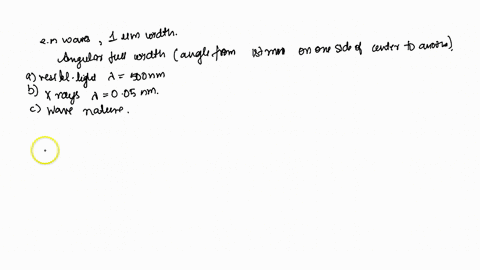 e.m waves, 1 µm width.
Angular full width (angle from 1st min on one side of center to across).
a) visible light λ = 500nm
b) X rays λ = 0.05 nm.
c) wave nature.